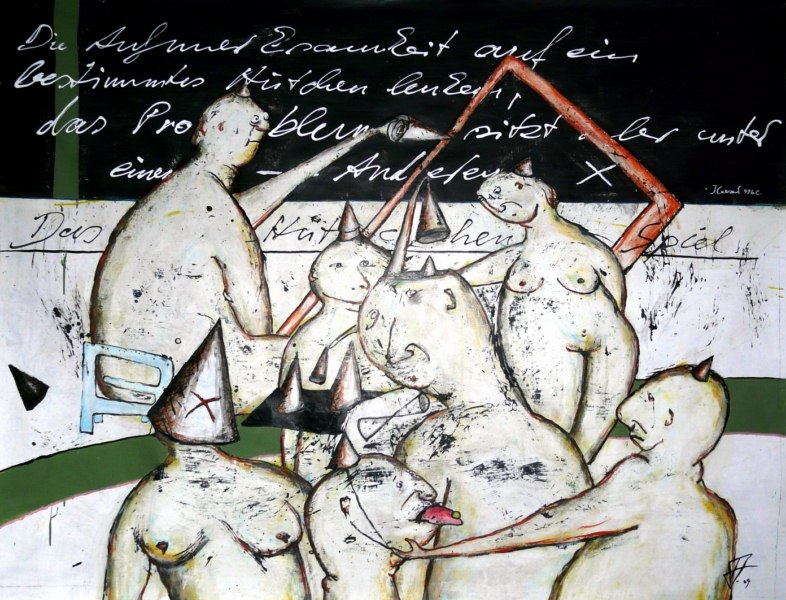 Die Aufmerksamkeit auf ein
bestimmtes Hütchen lenken,
das Problem sitzt aber unter
einem - - Anderen X
Das Hütchen Spiel
X
09